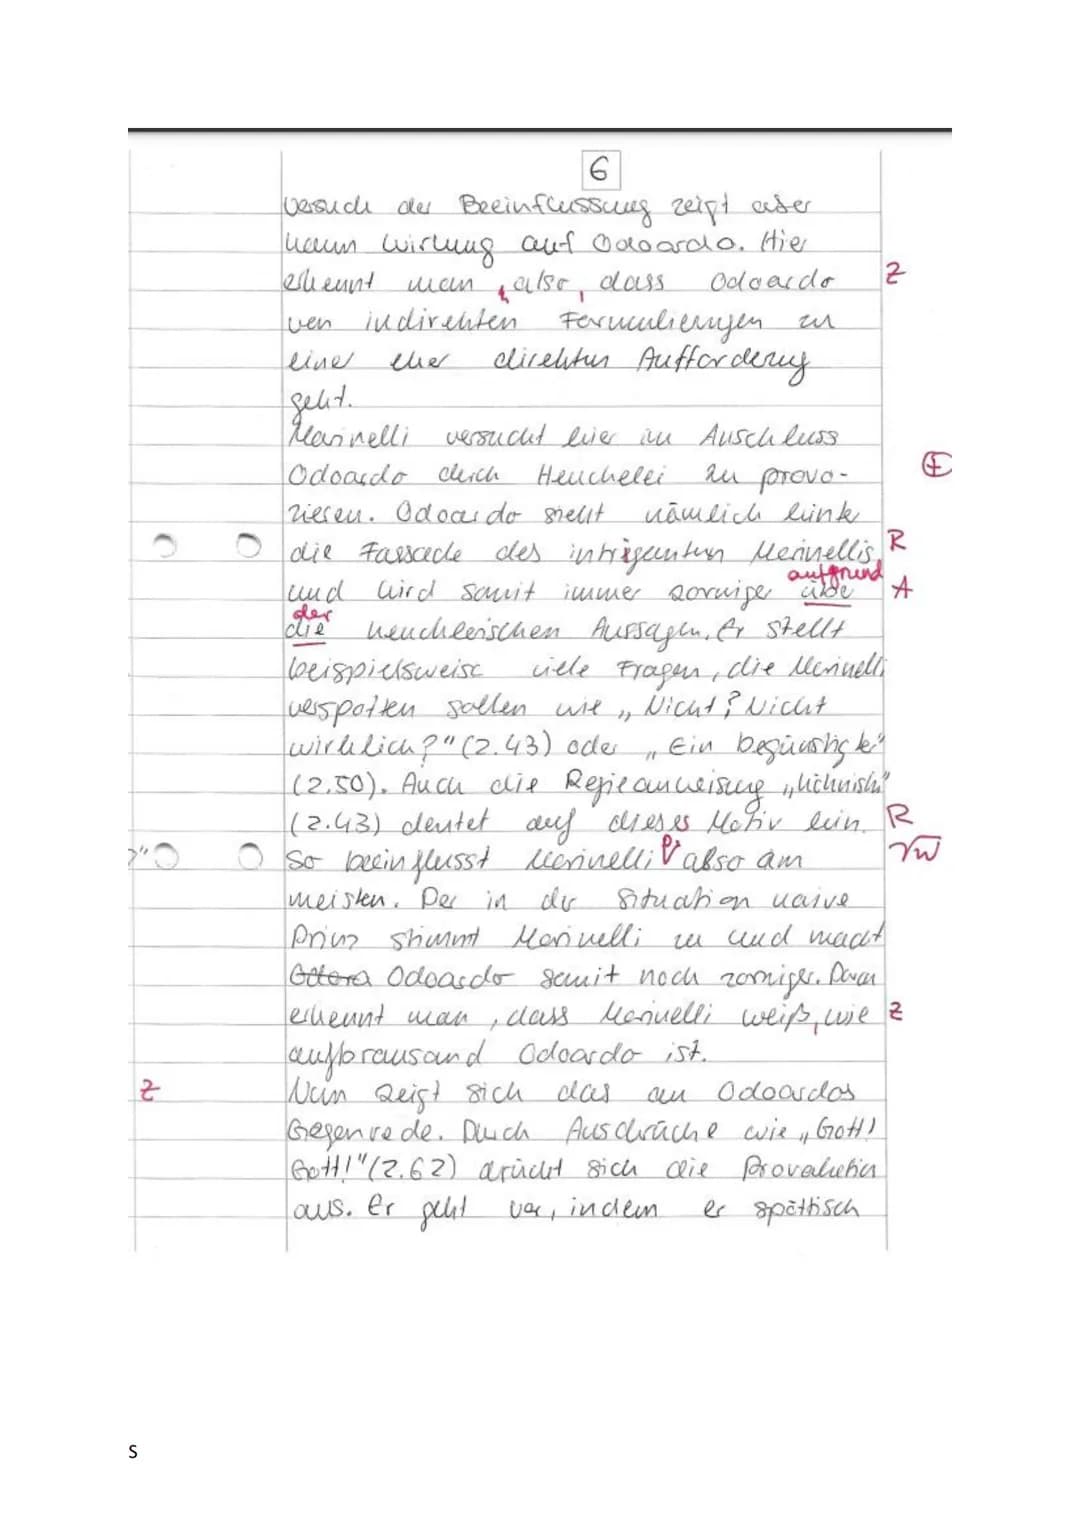 6
Versuch der Beeinflussung zeigt aber
kaum Wirkung auf Odoardo. Hier
erkennt man, also, dass Odoardo Z
von indirekten Formulierungen zu
einer eher direkten Aufforderung
geht.
Marinelli versucht hier im Anschluss
Odoardo durch Heuchelei zu provo-
zieren. Odoardo sieht nämlich hinter
die Fassade des intriganten Marinellis R
aufgrund
und wird somit immer zorniger über A
der
die heuchlerischen Aussagen. Er stellt
beispielsweise viele Fragen, die Marinelli
verspotten sollen wie „Nicht? Nicht
wirklich?" (Z.43) oder „Ein begünstigter"
(Z.50). Auch die Regieanweisung „höhnisch"
(Z.43) deutet auf dieses Motiv hin. R
So beeinflusst Marinelli also am
meisten. Der in der Situation naive
Prinz stimmt Marinelli zu und macht
Odoardo somit noch zorniger. Daran
erkennt man, dass Marinelli weiß, wie Z
aufbrausand Odoardo ist.
Z Nun zeigt sich das an Odoardos
Gegenrede. Durch Ausdrücke wie „Gott!
Gott!" (Z.62) drückt sich die Provokation
aus. Er geht vor, indem er spöttisch
S